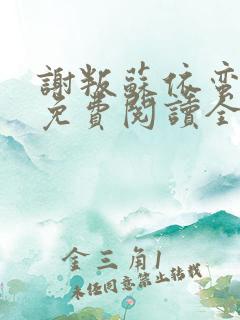 謝叛蘇依蛮
免費閱讀全
金三角1
未经同意禁止转载